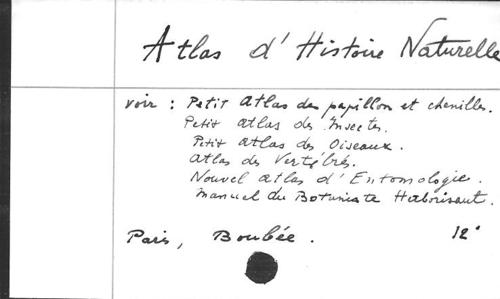 Atlas d'Histoire Naturelle
voir : Petit Atlas des papillon et chenilles.
Petit atlas des Insectes.
Petit atlas des Oiseaux.
Atlas des Vertébrés.
Nouvel atlas d'Entomologie.
Manuel du Botaniste Herborisant.
Paris, Boubée. 12°